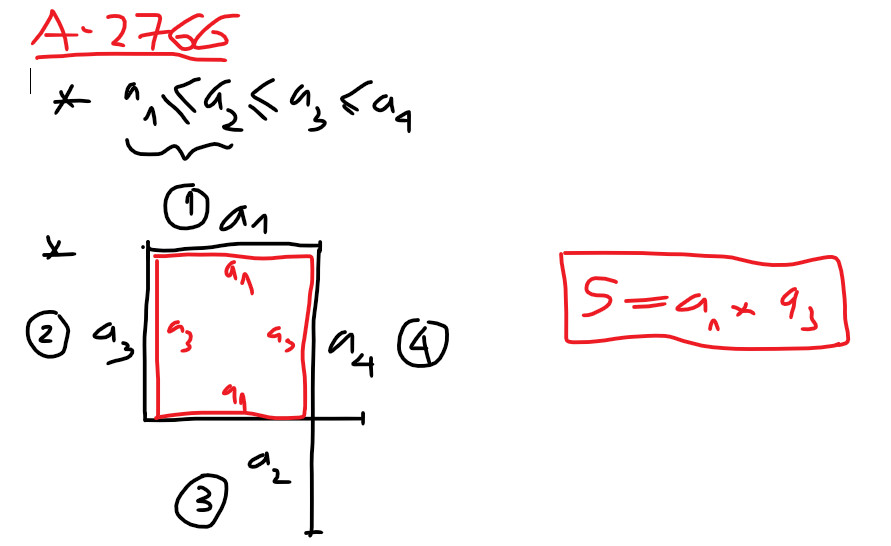 A-2766
* a1 ≤ a2 ≤ a3 ≤ a4
1 a1
*
a1
2 a3 a3 a3 a4 4
a1
a2
3
S = a1 * a3